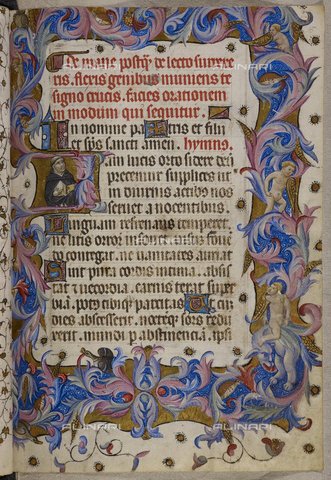 De mane postq̄ de lecto surrexe
ris. flexis genibus muniens te
signo crucis. facies orationem
in modum qui sequitur.
In nomine patris et filii
et sp̄s sancti amen. hymnus.
Iam lucis orto sidere deū
precemur suplices ut
in diurnis actibus nos
servet a nocentibus.
Linguam refrenans temperet
ne litis orror insonet visus fove
do contegat. ne vanitates auriat
Sint pura cordis intima. absi
stat et vecordia. carnis terat super
biā. potus cibique parcitas. Ut cum
dies abscesserit. noctemq; sors redu
xerit. mundi p abstinenciā. ipsi
ALINARI
ALINARI